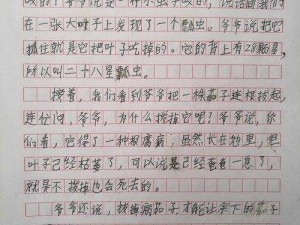 在一张大叶子上发现了一个瓢虫。爷爷说把它
抓住就是它把叶子吃掉的。它的背上有28颗星,
所以叫二十八星瓢虫。
接着,我们看到爷爷把一棵茄子连根拔起,
连忙问,爷爷,为什么拔掉它呢?爷爷说,你
们看,它得了一种根腐病,虽然长在地里,但
叶子已经枯萎了,可以说是已经奄奄一息了,
就算不拔掉也会死去的。
爷爷还说,拔掉病茄子才能让余下的茄子